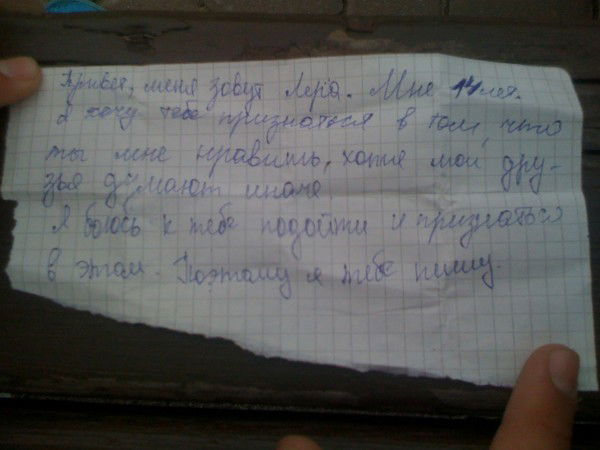 Привет, меня зовут Лера. Мне 14 лет.
Я хочу тебе признаться в том, что
ты мне нравишь, хотя мои дру-
зья думают иначе
Я боюсь к тебе подойти и признаться
в этом. Поэтому я тебе пишу.